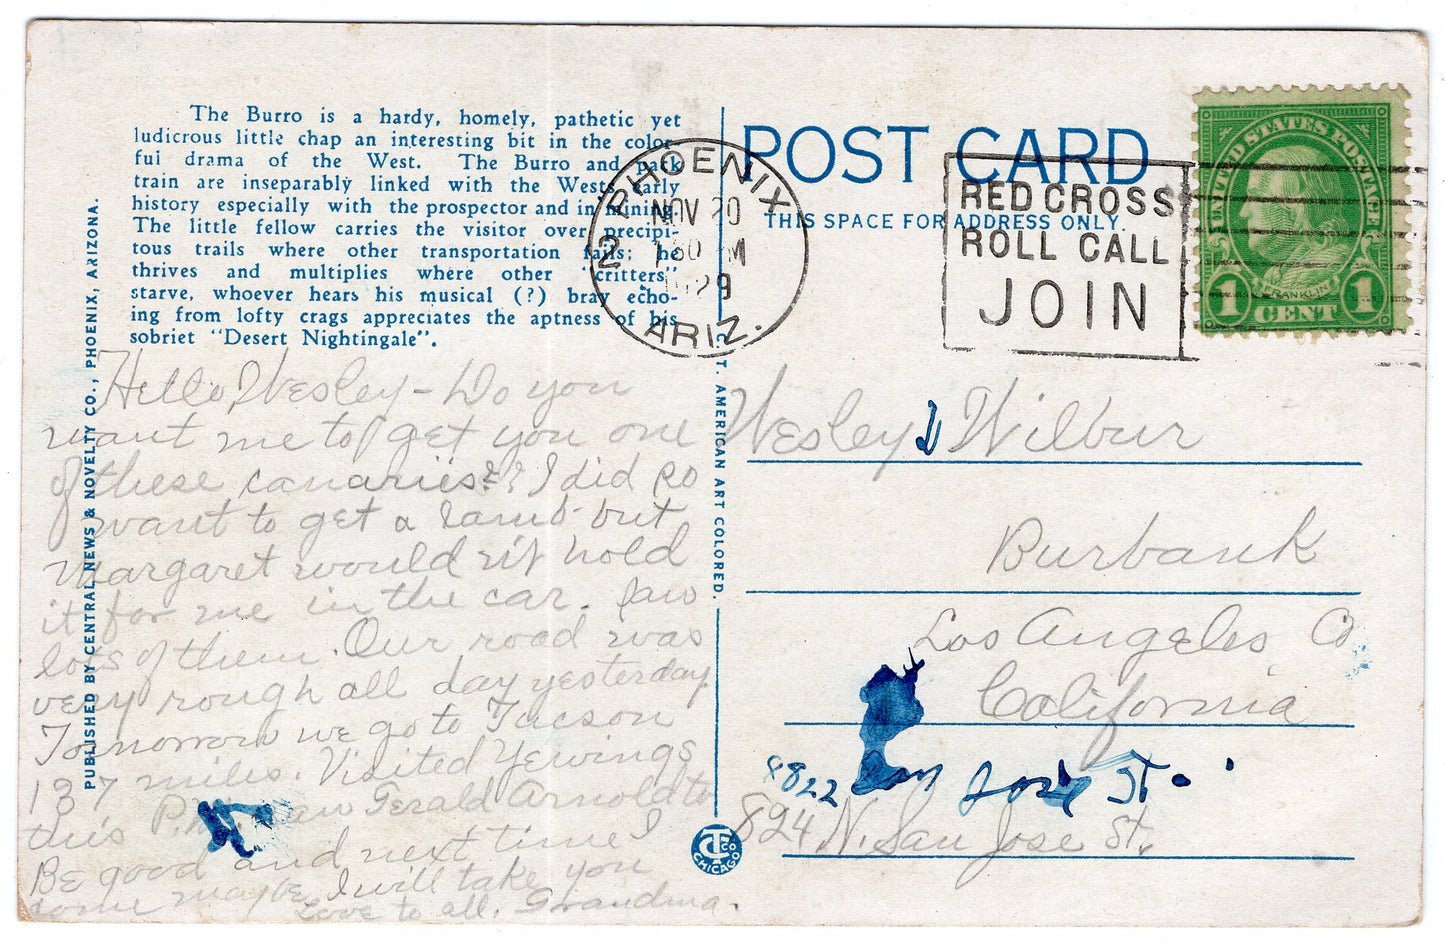 The Burro is a hardy, homely, pathetic yet
ludicrous little chap an interesting bit in the color-
ful drama of the West. The Burro and pack
train are inseparably linked with the Wests early
history especially with the prospector and in mining.
The little fellow carries the visitor over precipi-
tous trails where other transportation fails; he
thrives and multiplies where other "critters"
starve, whoever hears his musical (?) bray echo-
ing from lofty crags appreciates the aptness of his
sobriet "Desert Nightingale".
PUBLISHED BY CENTRAL NEWS & NOVELTY CO., PHOENIX, ARIZONA.
Hello Wesley - Do you
want me to get you one
of these canaries?? I did so
want to get a lamb - but
Margaret would n't hold
it for me in the car. Saw
lots of them. Our road was
very rough all day yesterday.
Tomorrow we go to Tucson
137 miles. Visited Yewings
this P.M. Saw Gerald Arnold to
Be good and next time I
come maybe I will take you
Love to all. Grandma.
C. T. AMERICAN ART COLORED.
POST CARD
THIS SPACE FOR ADDRESS ONLY.
PHOENIX
NOV 20
130 M
1929
2
ARIZ.
RED CROSS
ROLL CALL
JOIN
UNITED STATES POSTAGE
FRANKLIN
1 CENT 1
Wesley Wilbur
Burbank
Los Angeles Co
California
8822 San Jose St.
824 N. San Jose St.
CT CO
CHICAGO